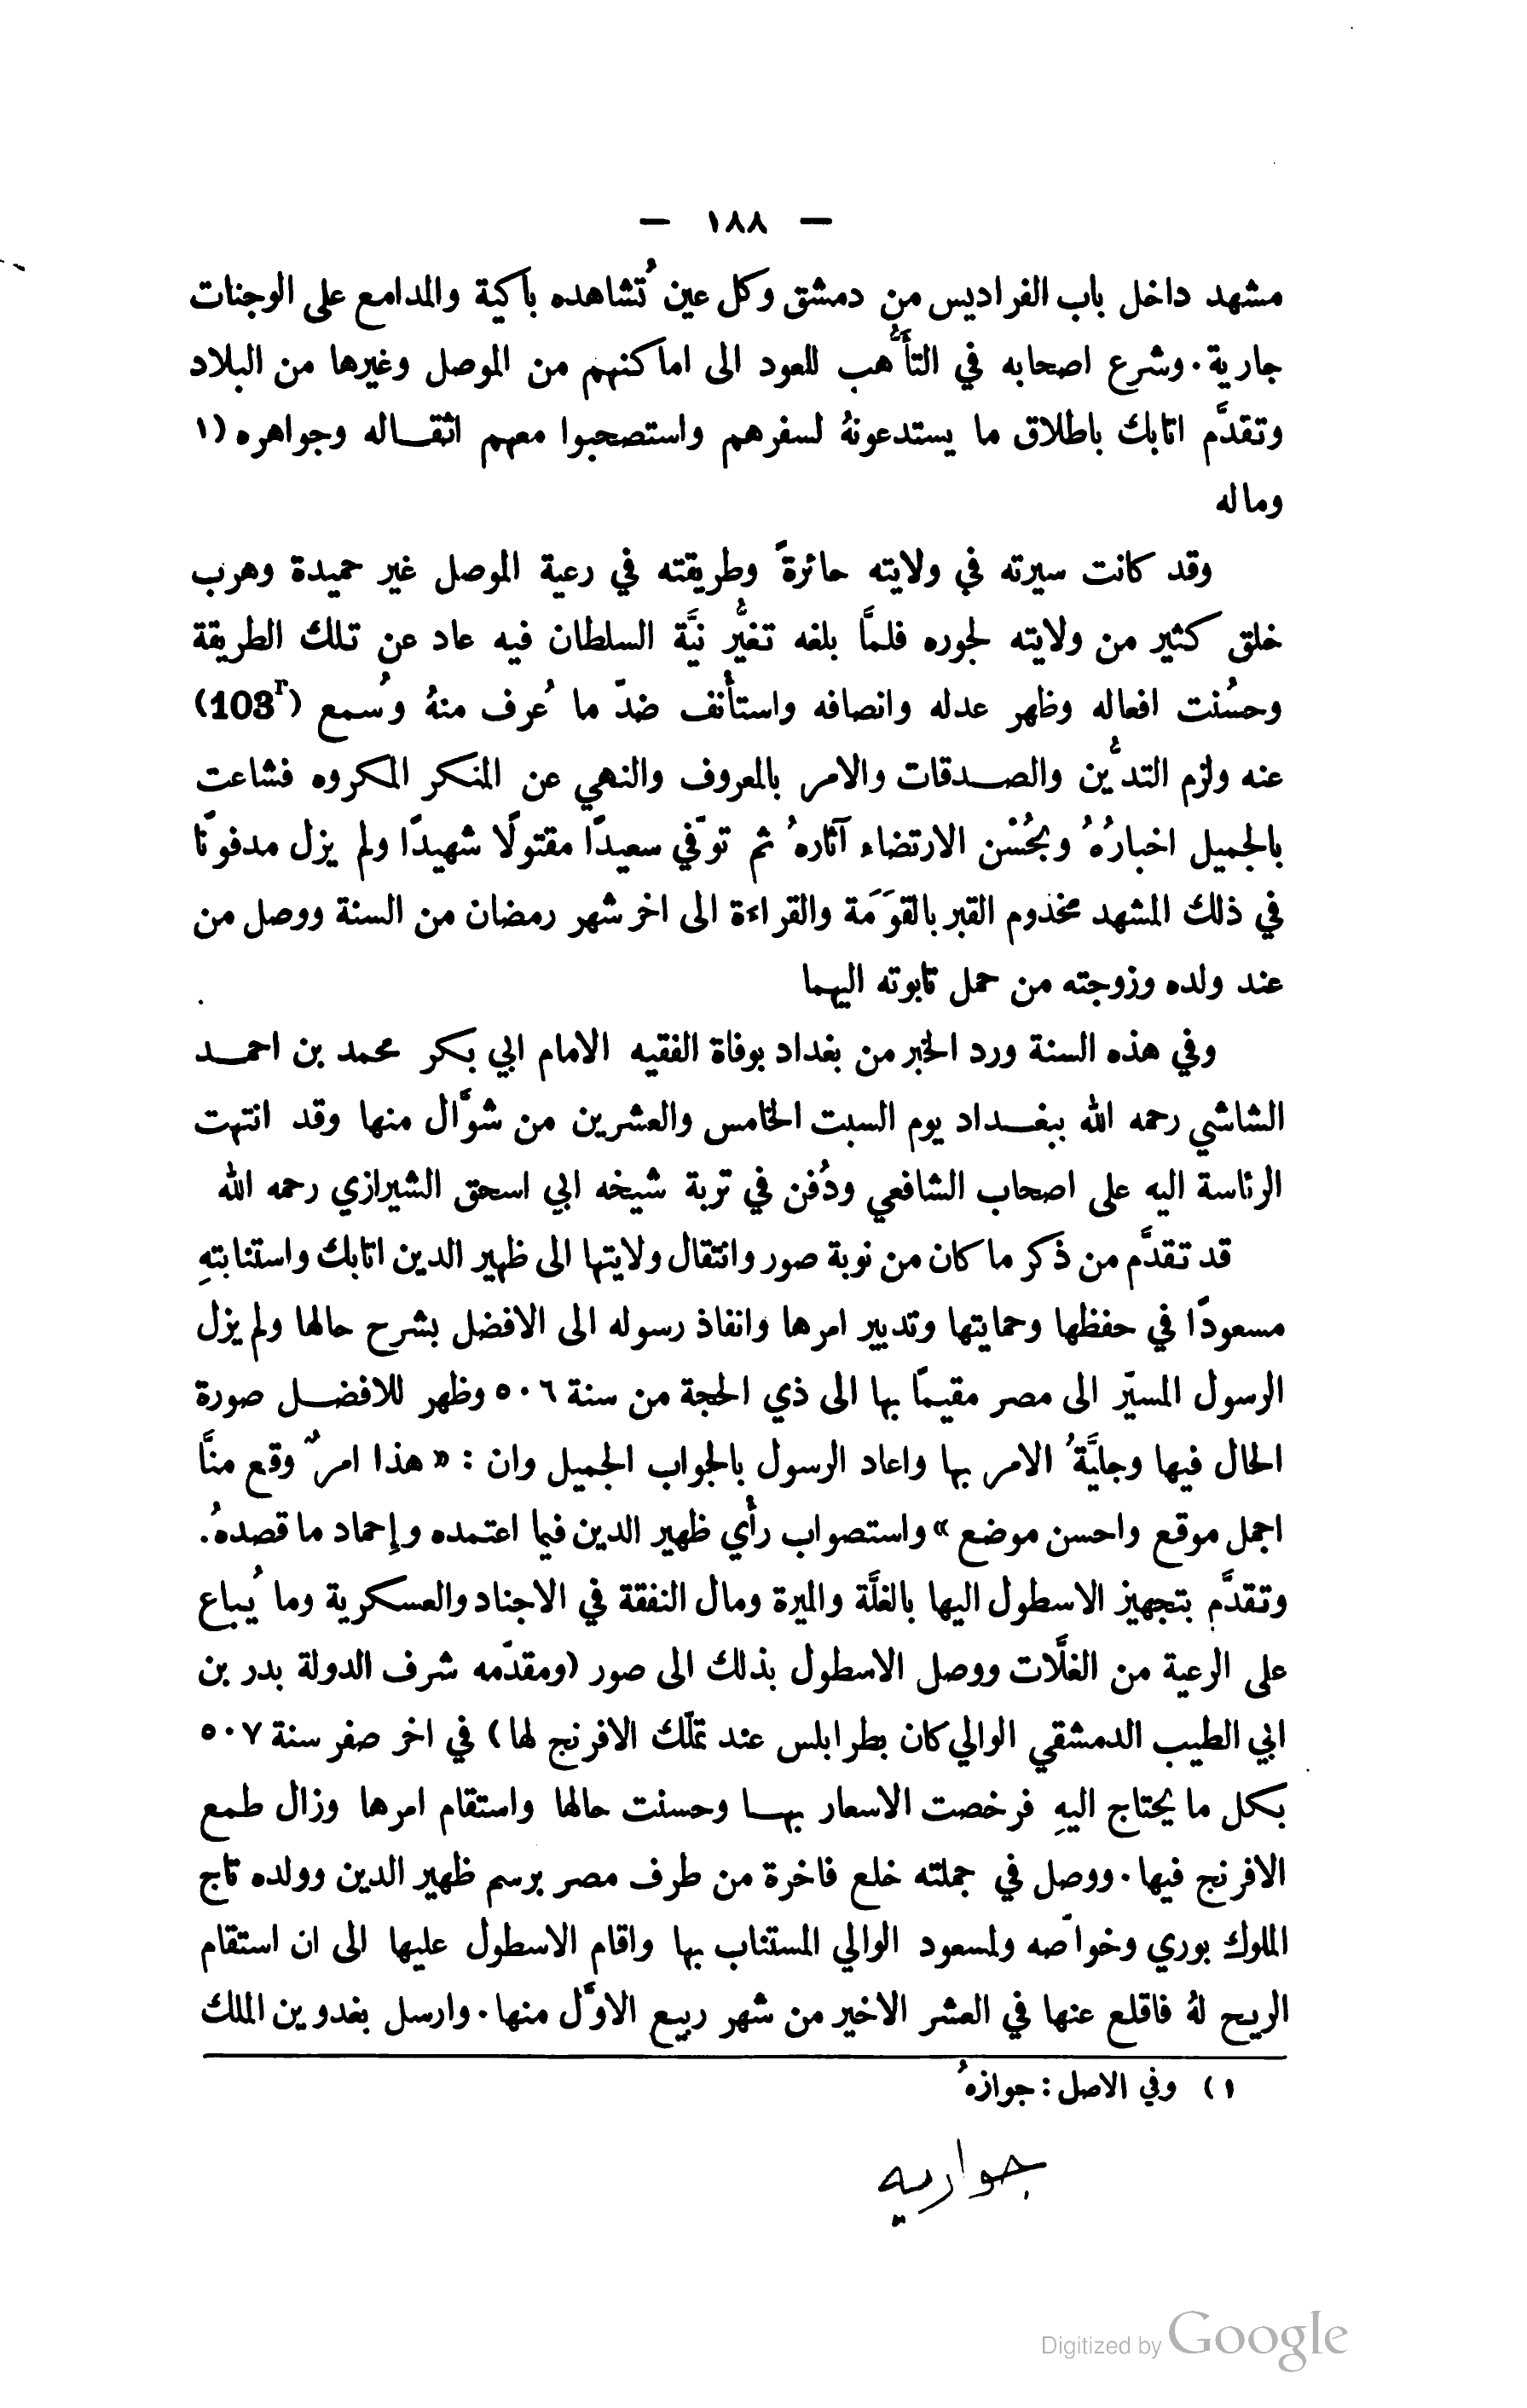 — ١٨٨ —
مشهد داخل باب الفراديس من دمشق وكل عين تُشاهده باكية والمدامع على الوجنات
جارية. وشرع اصحابه في التأَهُّب للعود الى اماكنهم من الموصل وغيرها من البلاد
وتقدَّم اتابك باطلاق ما يستدعونهُ لسفرهم واستصحبوا معهم اثقاله وجواهره (١
وماله
وقد كانت سيرته في ولايته حائرةً وطريقته في رعية الموصل غير حميدة وهرب
خلق كثير من ولايته لجوره فلمَّا بلغه تغيُّر نيَّة السلطان فيه عاد عن تلك الطريقة
وحسُنت افعاله وظهر عدله وانصافه واستأنف ضدّ ما عُرف منهُ وسُمع (103r)
عنه ولزم التديُّن والصدقات والامر بالمعروف والنهي عن المنكر المكروه فشاعت
بالجميل اخبارُهُ وبحُسْن الارتضاء آثارهُ ثم توّفي سعيدًا مقتولًا شهيدًا ولم يزل مدفونًا
في ذلك المشهد مخذوم القبر بالقوَمَة والقراءة الى اخر شهر رمضان من السنة ووصل من
عند ولده وزوجته من حمل تابوته اليهما
وفي هذه السنة ورد الخبر من بغداد بوفاة الفقيه الامام ابي بكر محمد بن احمد
الشاشي رحمه الله ببغداد يوم السبت الخامس والعشرين من شوَّال منها وقد انتهت
الرئاسة اليه على اصحاب الشافعي ودُفن في تربة شيخه ابي اسحق الشيرازي رحمه الله
قد تقدَّم من ذكر ما كان من نوبة صور وانتقال ولايتها الى ظهير الدين اتابك واستنابتهِ
مسعودًا في حفظها وحمايتها وتدبير امرها وانفاذ رسوله الى الافضل بشرح حالها ولم يزل
الرسول المسيّر الى مصر مقيمًا بها الى ذي الحجة من سنة ٥٠٦ وظهر للافضل صورة
الحال فيها وجليَّةُ الامر بها واعاد الرسول بالجواب الجميل وان : « هذا امرٌ وقع منَّا
اجمل موقع واحسن موضع » واستصواب رأي ظهير الدين فيما اعتمده وإحماد ما قصدهُ.
وتقدَّم بتجهيز الاسطول اليها بالغلَّة والميرة ومال النفقة في الاجناد والعسكرية وما يُباع
على الرعية من الغلَّات ووصل الاسطول بذلك الى صور (ومقدّمه شرف الدولة بدر بن
ابي الطيب الدمشقي الوالي كان بطرابلس عند تملّك الافرنج لها) في اخر صفر سنة ٥٠٧
بكل ما يحتاج اليهِ فرخصت الاسعار بها وحسنت حالها واستقام امرها وزال طمع
الافرنج فيها. ووصل في جملته خلع فاخرة من طرف مصر برسم ظهير الدين وولده تاج
الملوك بوري وخواصّه ولمسعود الوالي المستناب بها واقام الاسطول عليها الى ان استقام
الريح لهُ فاقلع عنها في العشر الاخير من شهر ربيع الاوَّل منها. وارسل بغدوين الملك
١) وفي الاصل : جوازهُ
جواريه
Digitized by Google